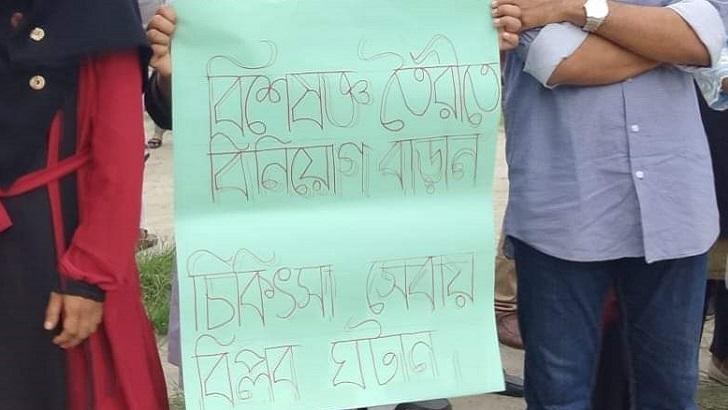 বিশেষজ্ঞ তৈরীতে
বিনিয়োগ বাড়ান
চিকিৎসা সেবায়
বিপ্লব ঘটান